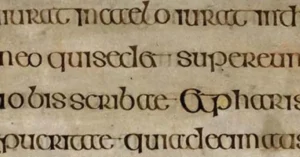 iurat in caelo iurat in th
neo qui sedet super eum
uobis scribae et pharis
pocritae quia decimatis